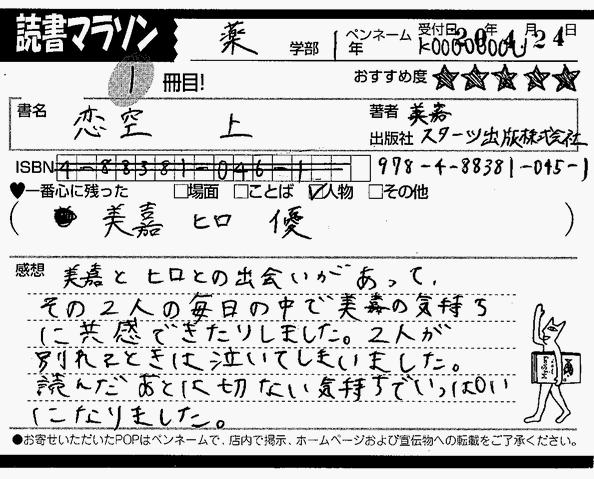 読書マラソン
薬 学部 1 年 ペンネーム 受付日 20年 4月24日
1 冊目!
おすすめ度 ★★★★★
書名 恋空 上
著者 美嘉
出版社 スターツ出版株式会社
ISBN 4-88381-046-1 978-4-88381-045-1
♥一番心に残った □場面 □ことば ☑人物 □その他
( 美嘉 ヒロ 優 )
感想 美嘉とヒロとの出会いがあって、
その2人の毎日の中で美嘉の気持ち
に共感できたりしました。2人が
別れたときは泣いてしまいました。
読んだあとは切ない気持ちでいっぱい
になりました。
●お寄せいただいたPOPはペンネームで、店内で掲示、ホームページおよび宣伝物への転載をご了承ください。